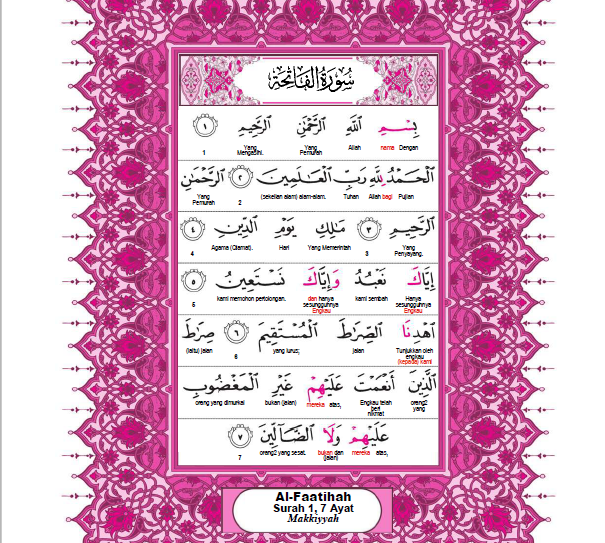 سُورَةُ الْفَاتِحَةِ
بِسْمِ اللَّهِ الرَّحْمَٰنِ الرَّحِيمِ ١
Yang Mengasihi. Yang Pemurah Allah nama Dengan
1
الْحَمْدُ لِلَّهِ رَبِّ الْعَالَمِينَ ٢ الرَّحْمَٰنِ
Yang Pemurah (sekelian alam) alam-alam. Tuhan Allah bagi Pujian
2
الرَّحِيمِ ٣ مَالِكِ يَوْمِ الدِّينِ ٤
Agama (Qiamat). Hari Yang Memerintah 3 Yang Penyayang.
4
إِيَّاكَ نَعْبُدُ وَإِيَّاكَ نَسْتَعِينُ ٥
kami memohon pertolongan. dan hanya sesungguhnya Engkau kami sembah Hanya sesungguhnya Engkau
5
اهْدِنَا الصِّرَاطَ الْمُسْتَقِيمَ ٦ صِرَاطَ
(iaitu) jalan yang lurus; jalan Tunjukkan oleh engkau (kepada) kami
6
الَّذِينَ أَنْعَمْتَ عَلَيْهِمْ غَيْرِ الْمَغْضُوبِ
orang yang dimurkai bukan (jalan) mereka atas, Engkau telah beri nikmat orang2 yang
عَلَيْهِمْ وَلَا الضَّالِّينَ ٧
orang2 yang sesat. bukan dan (jalan) mereka atas,
7
Al-Faatihah
Surah 1, 7 Ayat
Makkiyyah